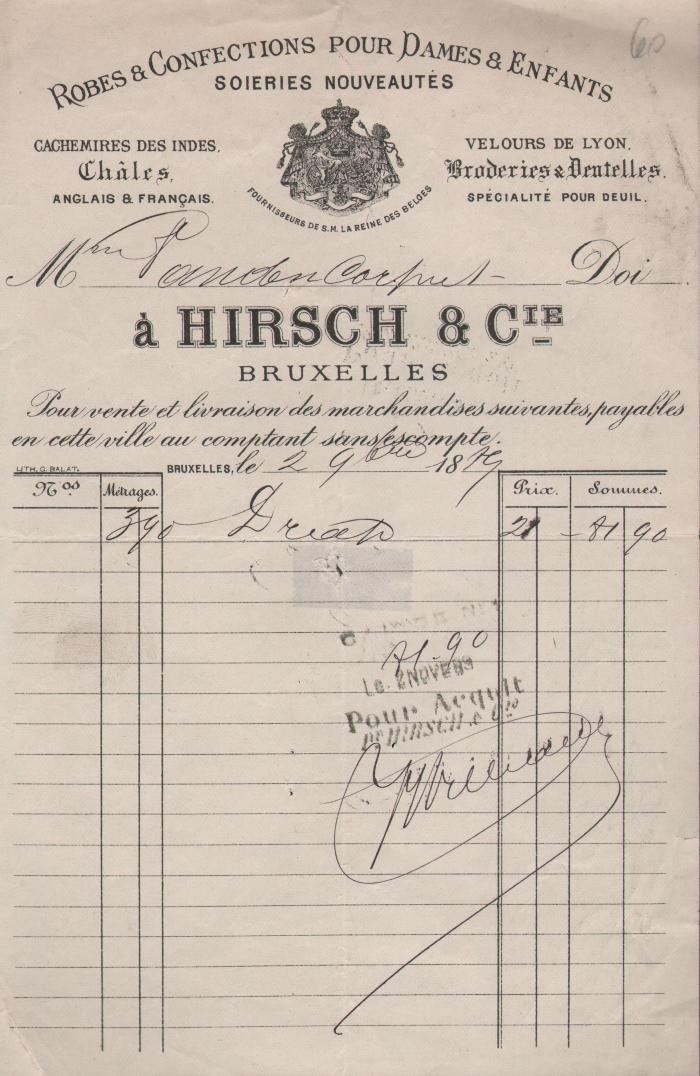 60
ROBES & CONFECTIONS POUR DAMES & ENFANTS
SOIERIES NOUVEAUTÉS
CACHEMIRES DES INDES,
Châles,
ANGLAIS & FRANÇAIS.
VELOURS DE LYON,
Broderies & Dentelles,
SPÉCIALITÉ POUR DEUIL.
FOURNISSEURS DE S.M. LA REINE DES BELGES
Mme Vandencorput Doi
à HIRSCH & CIE
BRUXELLES
Pour vente et livraison des marchandises suivantes, payables
en cette ville au comptant sans escompte.
LITH. G. BALAT.
BRUXELLES, le 2 9bre 18
Nos Métrages. Prix. Sommes.
3 90 Drap 21 81 90
81.90
Le 2 NOV
Pour Acquit
Pr HIRSCH & Cie